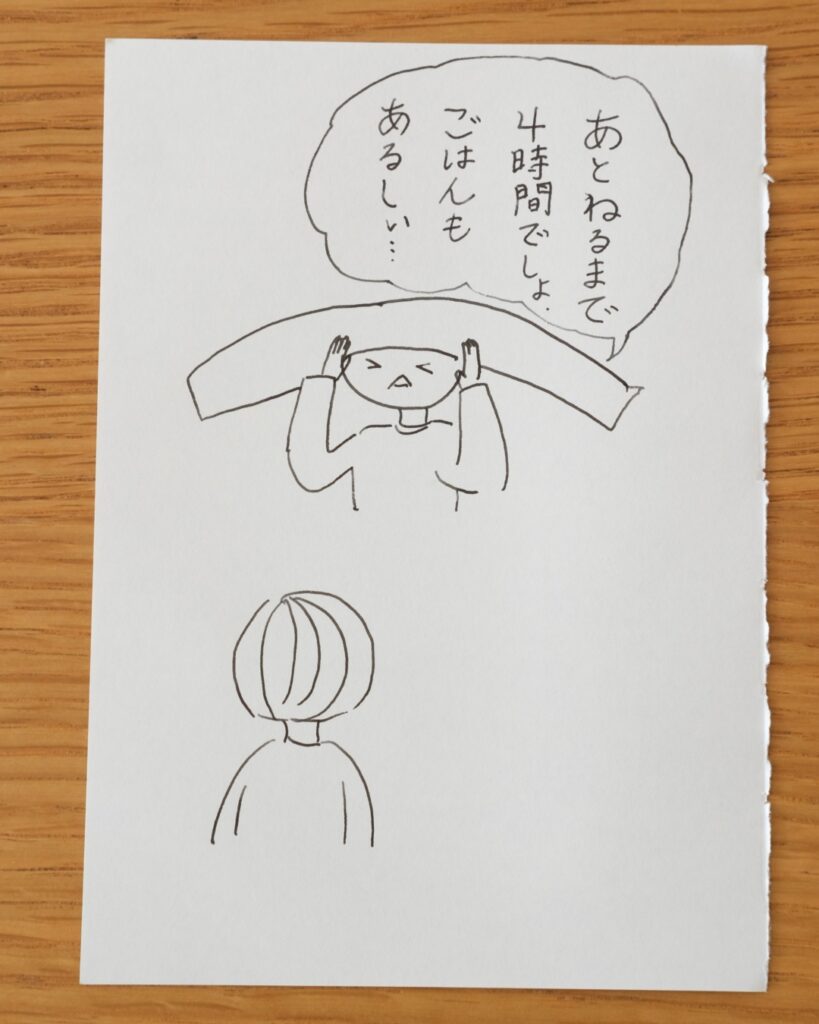 あとねるまで
4時間でしょ.
ごはんも
あるしぃ…